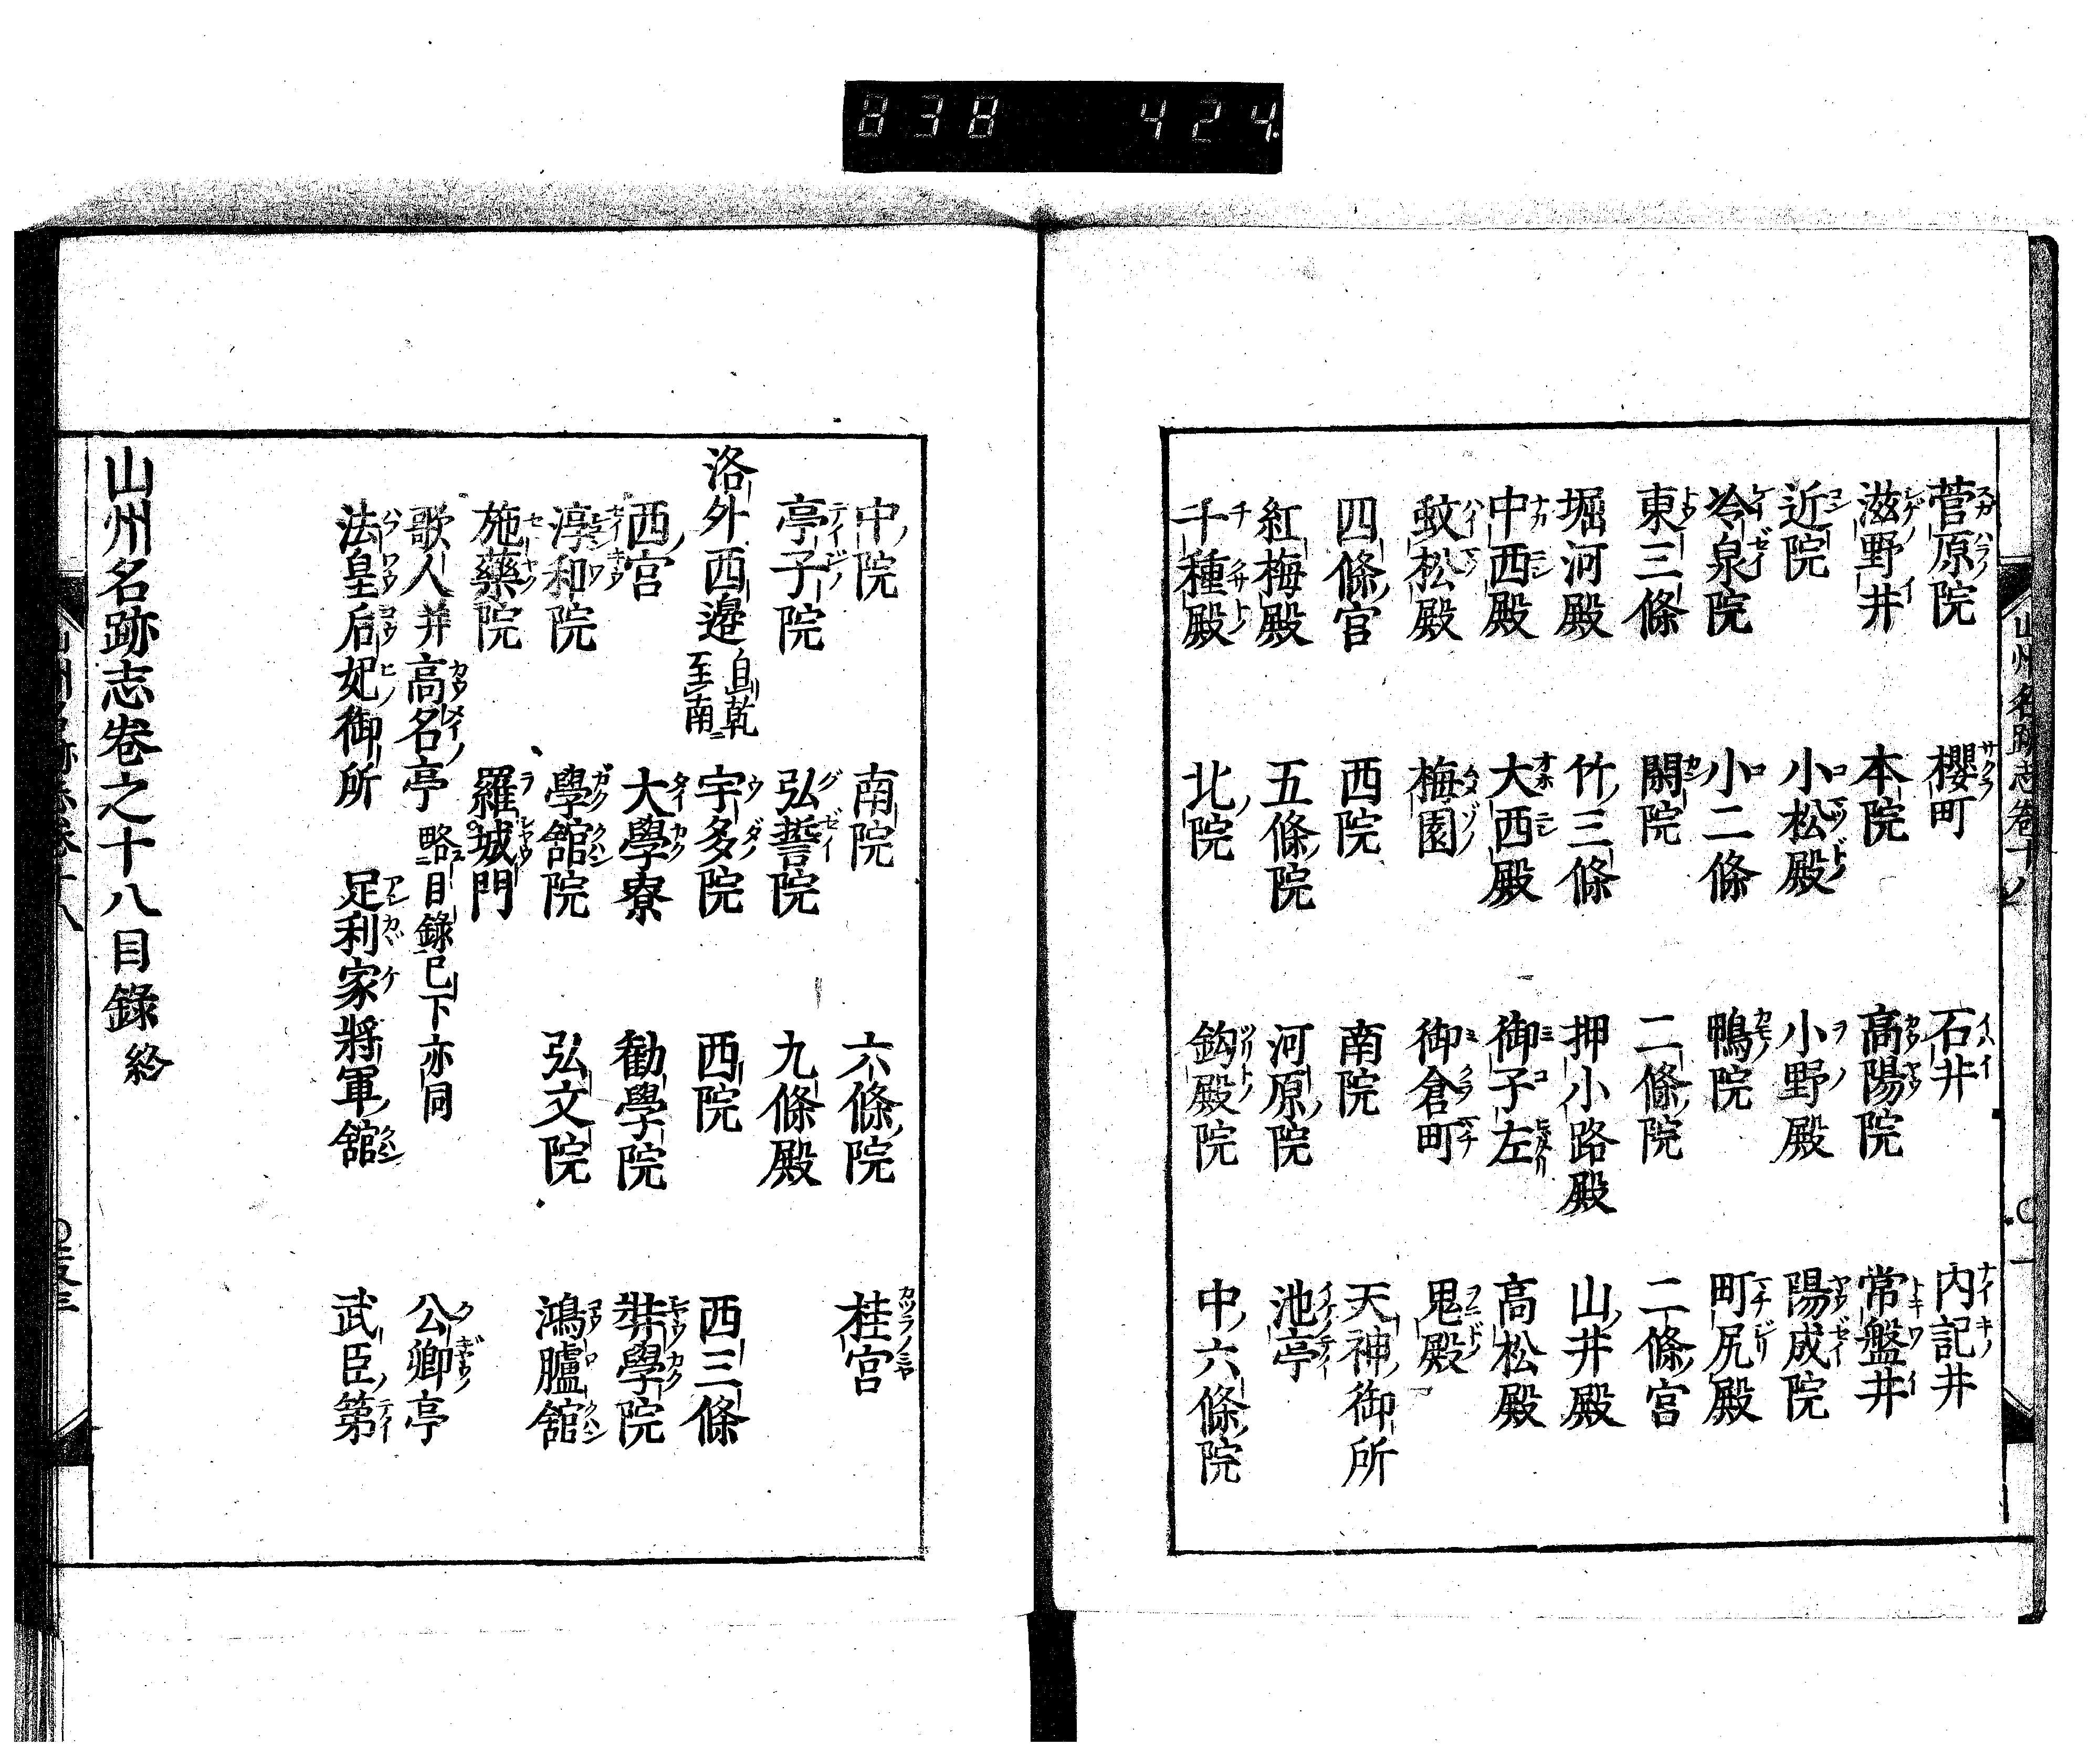 838 424
菅原院 櫻町 石井 内記井
滋野井 本院 高陽院 常盤井
近院 小松殿 小野殿 陽成院
冷泉院 小二條 鴨院 町尻殿
東三條 閑院 二條院 二條宮
堀河殿 竹三條 押小路殿 山井殿
中西殿 大西殿 御子左 高松殿
蚊松殿 梅園 御倉町 鬼殿
四條宮 西院 南院 天神御所
紅梅殿 五條院 河原院 池亭
千種殿 北院 釣殿院 中六條院
中院 南院 六條院 桂宮
亭子院 弘誓院 九條殿
洛外西邉 自乾至南 宇多院 西院 西三條
西宮 大學寮 勸學院 弉學院
淳和院 學舘院 弘文院 鴻臚舘
施藥院 羅城門
歌人并高名亭 略目録已下亦同 公卿亭
法皇后妃御所 足利家將軍舘 武臣第
山州名跡志巻之十八目録終